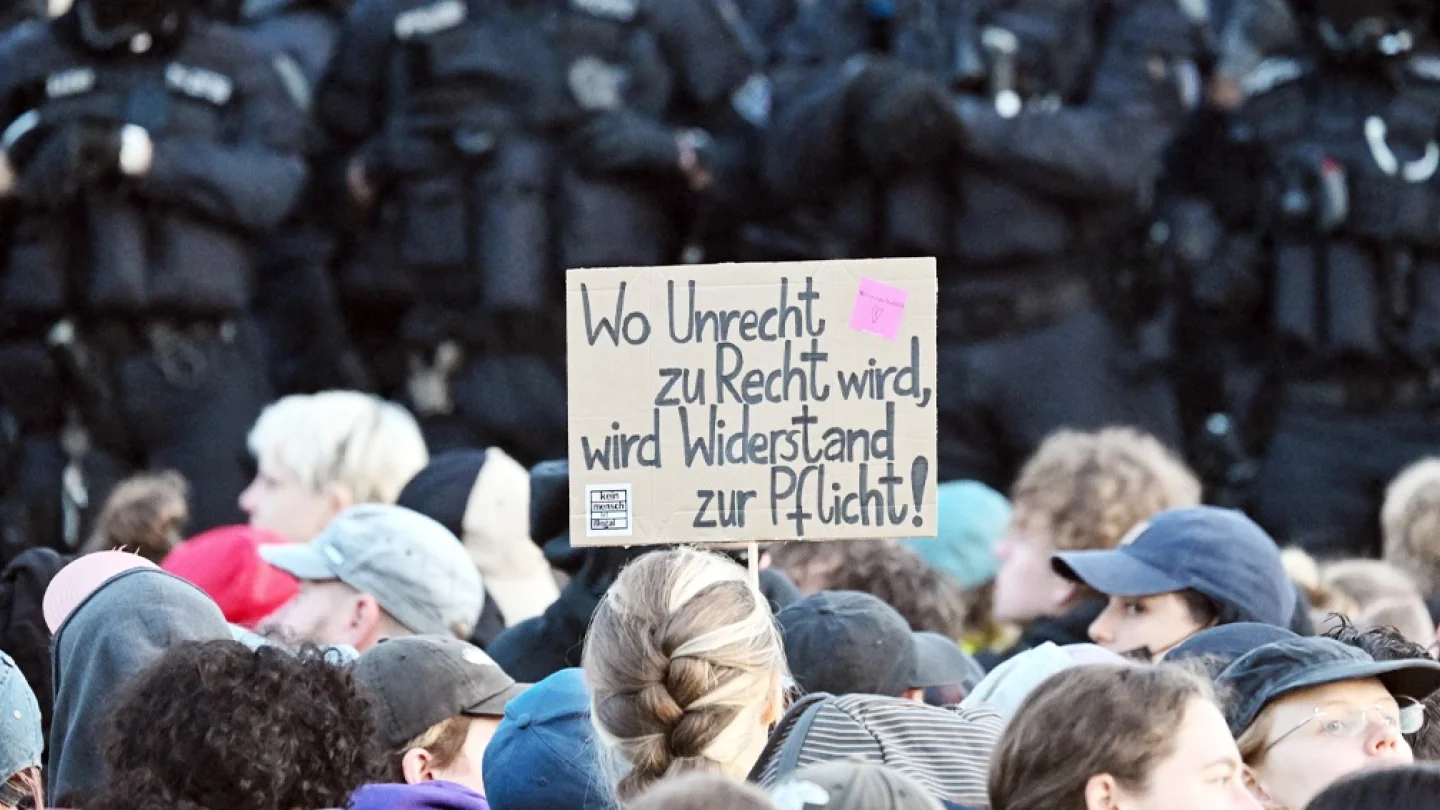 Wo Unrecht
zu Recht wird,
wird Widerstand
zur Pflicht!
kein
mensch
ist
illegal